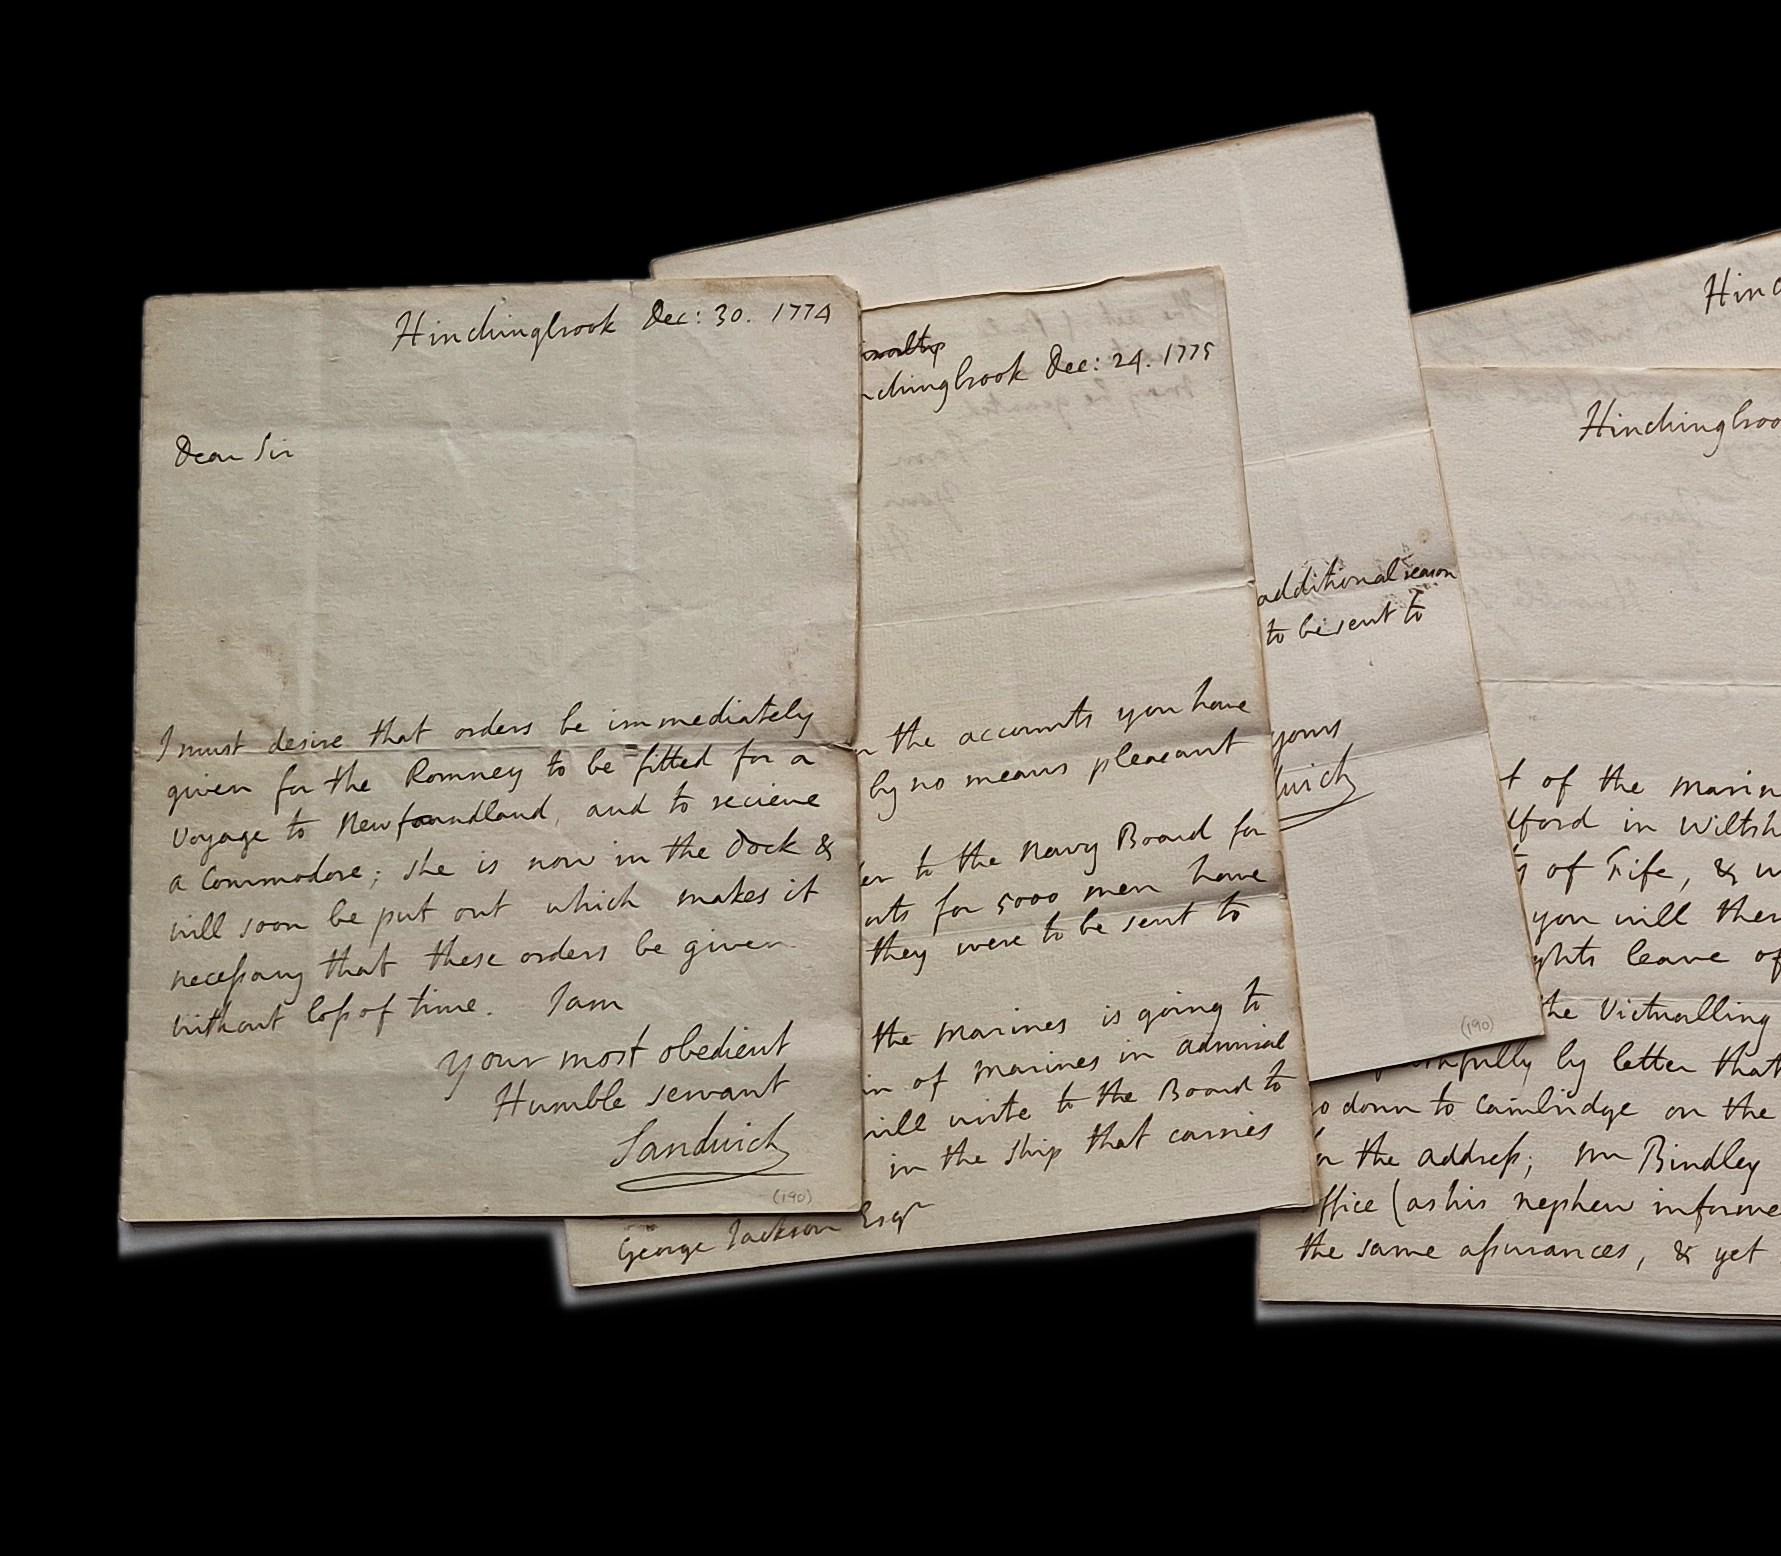 Hinchingbrook Dec: 30. 1774
Dear Sir
I must desire that orders be immediately
given for the Romney to be fitted for a
voyage to Newfoundland, and to recieve
a Commodore; she is now in the Dock &
will soon be put out which makes it
necessary that these orders be given
without loss of time. I am
your most obedient
Humble servant
Sandwich
(190)
chingbrook Dec: 24. 1775
the accounts you have
by no means pleasant
to the Navy Board for
for 5000 men have
they were to be sent to
the marines is going to
of marines in admiral
will write to the Board to
in the ship that carries
George Jackson Esqr
additional reason
to be sent to
yours
wich
(190)
Hinc
Hinchingbroo
t of the marin
ford in Wiltsh
of Fife, & w
you will then
ghts leave of
the Victualling
by letter that
o down to Cambridge on the
the address; Mr Bindley
ffice (as his nephew informe
the same assurances, & yet